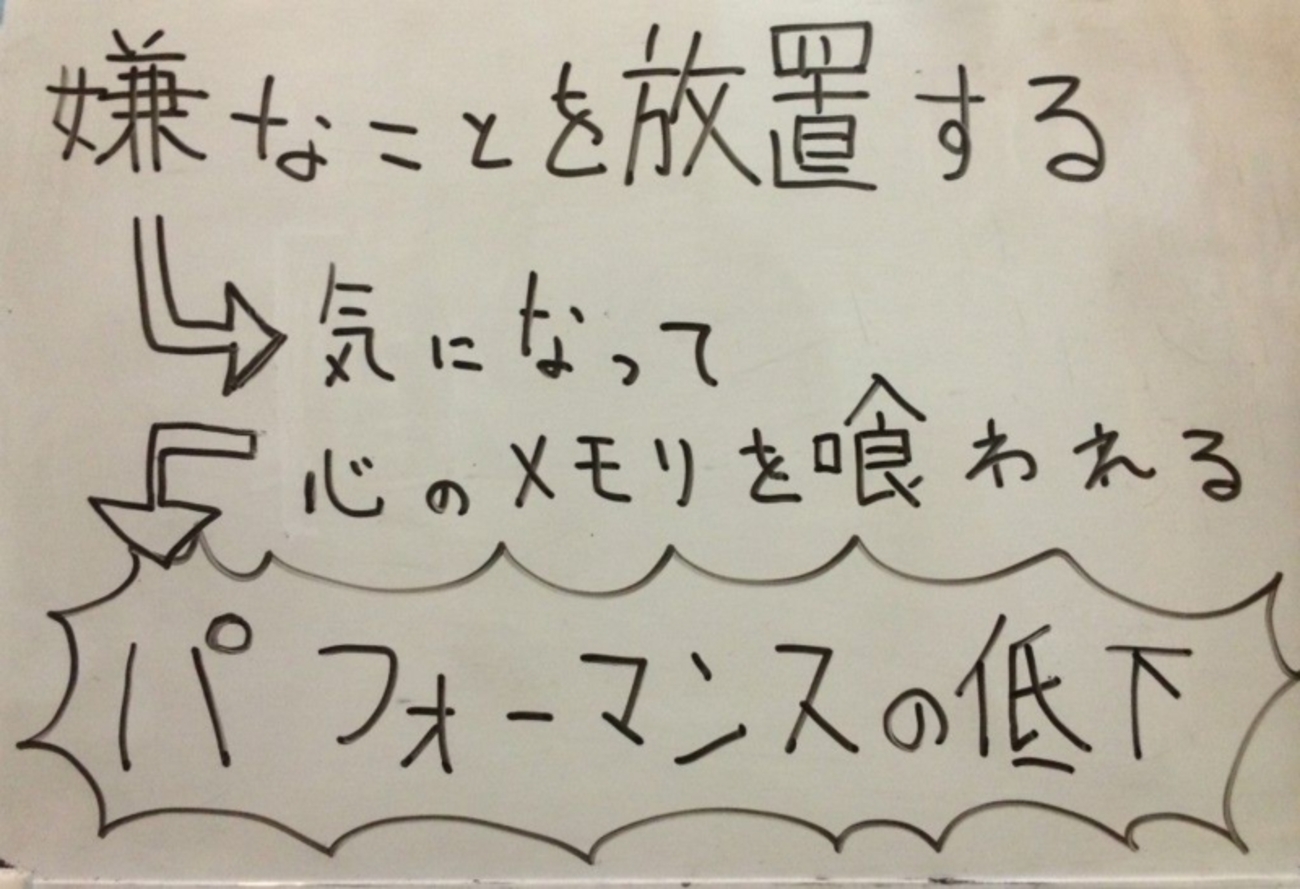 嫌なことを放置する
気になって
心のメモリを喰われる
パフォーマンスの低下